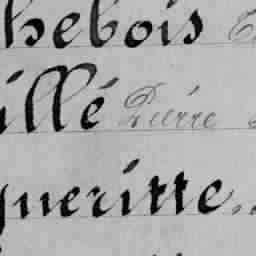 hebois
illé Pierre
gueritte..